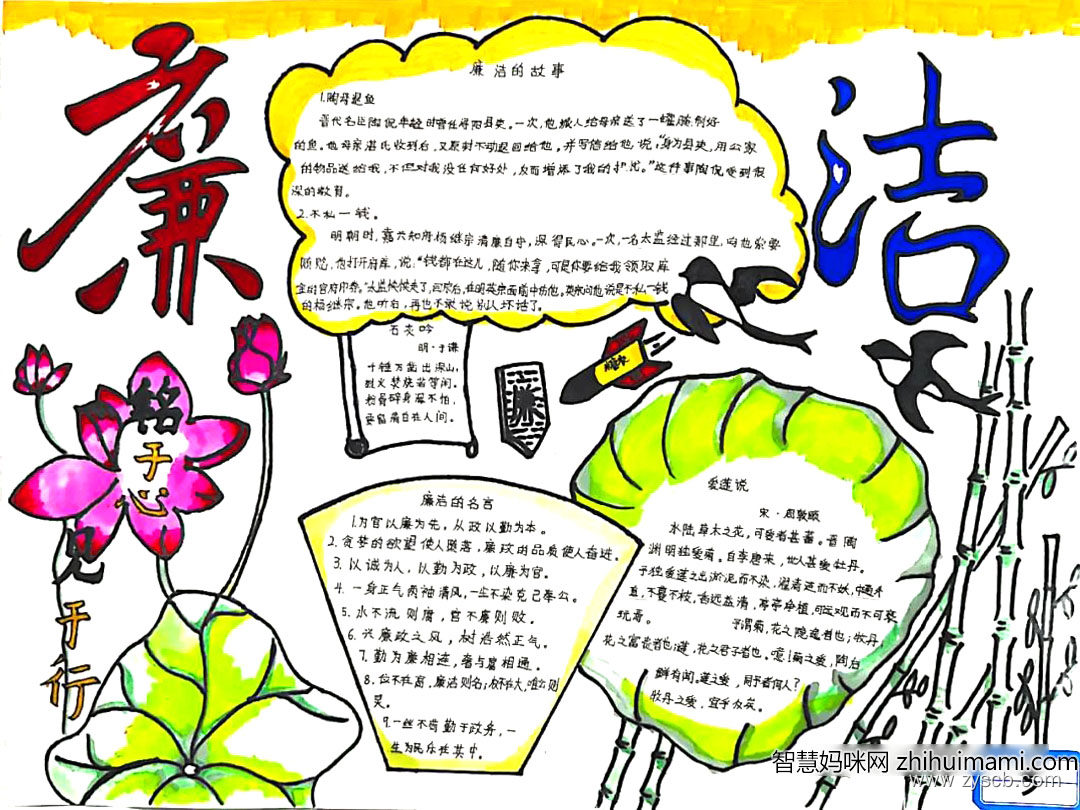 廉洁
廉洁的故事
1.陶母退鱼
晋代名臣陶侃年轻时曾任浔阳县吏。一次,他派人给母亲送了一罐腌制好
的鱼。他母亲湛氏收到后,又原封不动退回给他,并写信给他说,"身为县吏,用公家
的物品送给我,不但对我没任何好处,反而增添了我的担忧。"这件事陶侃受到很
深的教育。
2.不私一钱。
明朝时,嘉兴知府杨继宗清廉自守,深得民心。一次,一名太监经过那里,向他索要
贿赂,他打开府库,说:"钱都在这儿,随你来拿,可是你要给我领取库
金的官府印券。"太监怏怏走了,回京后,在明英宗面前中伤他。英宗问他说是不私一钱
的杨继宗。他听后,再也不敢说别人坏话了。
石灰吟
明·于谦
千锤万凿出深山,
烈火焚烧若等闲。
粉骨碎身浑不怕,
要留清白在人间。
廉
铭于心
见于行
廉洁的名言
1.为官以廉为先,从政以勤为本。
2.贪婪的欲望使人堕落,廉政的品质使人奋进。
3.以诚为人,以勤为政,以廉为官。
4.一身正气两袖清风,一尘不染克己奉公。
5.水不流则腐,官不廉则败。
6.兴廉政之风,树浩然正气。
7.勤为廉相连,奢与腐相通。
8.位不在高,廉洁则名;权不在大,唯公则
灵。
9.一丝不苟勤于政务,一
生为民乐在其中。
爱莲说
宋·周敦颐
水陆草木之花,可爱者甚蕃。晋陶
渊明独爱菊。自李唐来,世人甚爱牡丹。
予独爱莲之出淤泥而不染,濯清涟而不妖,中通外
直,不蔓不枝,香远益清,亭亭净植,可远观而不可亵
玩焉。 予谓菊,花之隐逸者也;牡丹,
花之富贵者也;莲,花之君子者也。噫!菊之爱,陶后
鲜有闻。莲之爱,同予者何人?
牡丹之爱,宜乎众矣。
智慧妈咪网 zhihuimami.com
www.zyseb.com